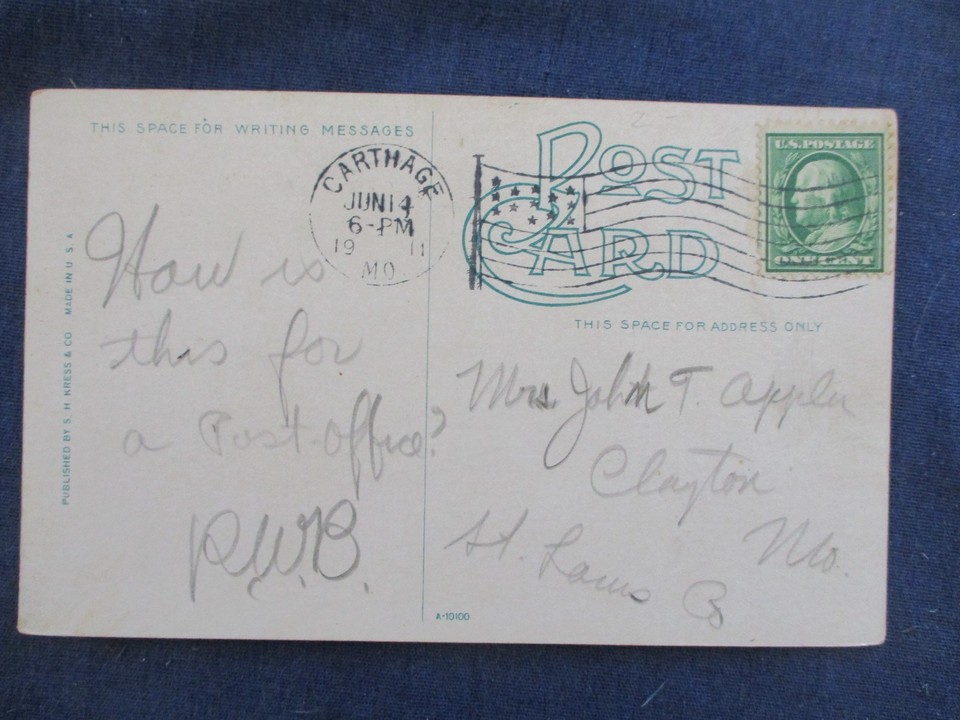 THIS SPACE FOR WRITING MESSAGES
CARTHAGE
JUN 14
6-PM
19 11
MO
POST
CARD
U.S. POSTAGE
ONE CENT
THIS SPACE FOR ADDRESS ONLY
How is
this for
a Post-office?
R.W.B.
Mrs. John T. Appler
Clayton
Mo.
St. Louis Co
PUBLISHED BY S. H. KRESS & CO. MADE IN U S A
A-10100